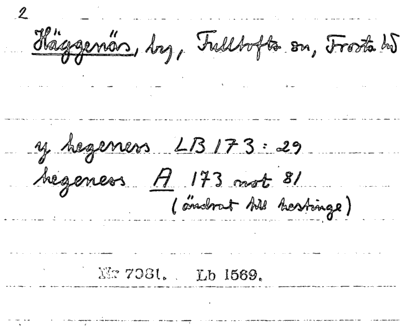 2
Häggenäs, by, Fulltofta sn, Frosta hd
y hegeness LB 173: 29
hegeness A 173 not 81
(ändrat till hestinge)
Nr 7081. Lb 1569.